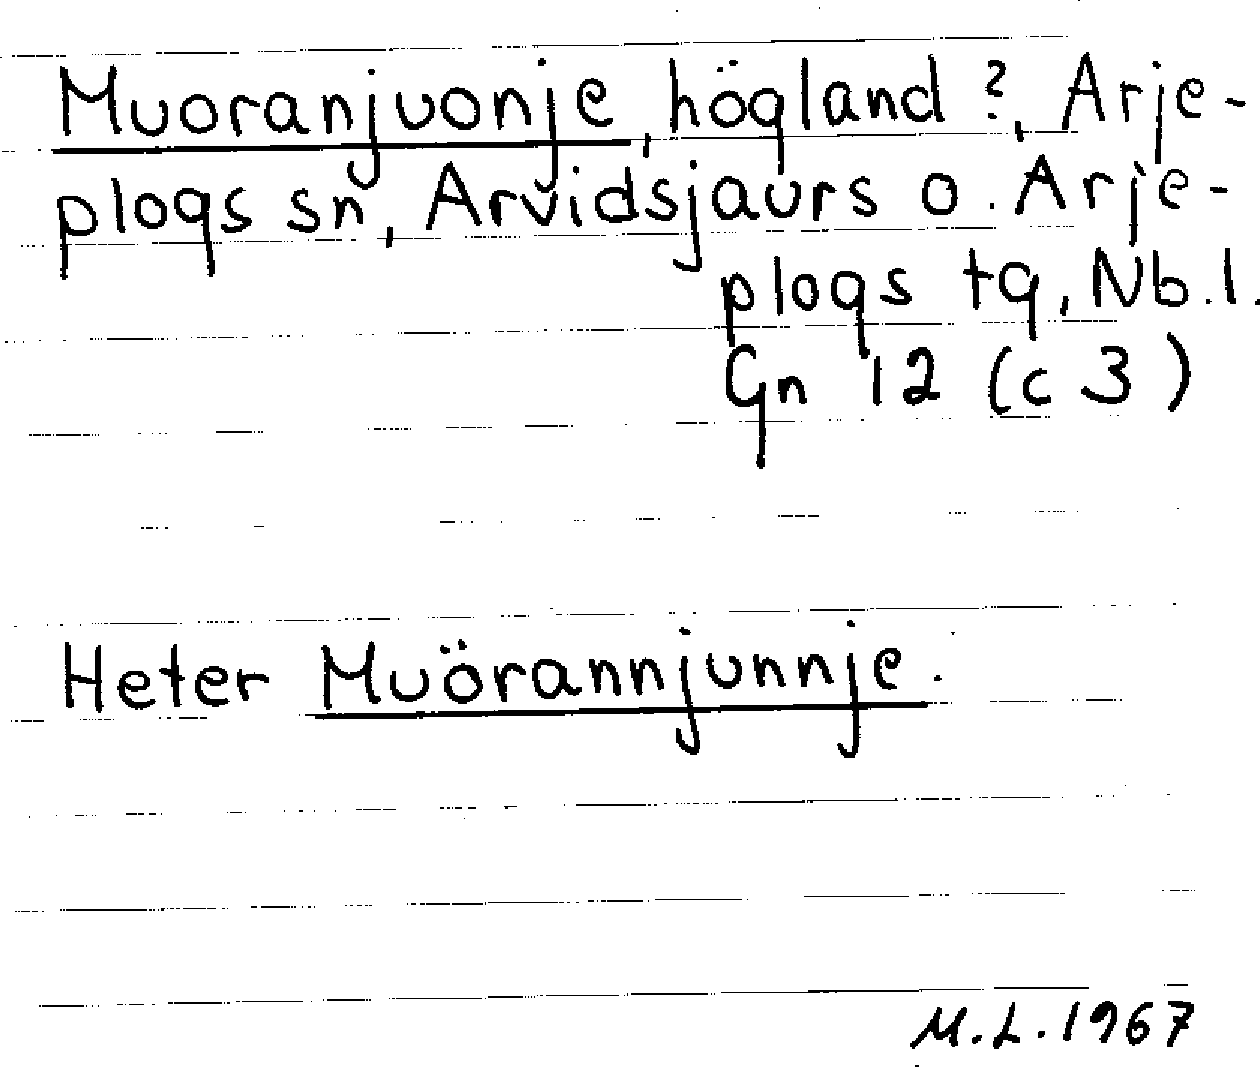 Muoranjuonje, högland ?, Arje-
plogs sn, Arvidsjaurs o. Arje-
plogs tg, Nb. l.
Gn 12 (c 3)
Heter Muörannjunnje.
M.L. 1967